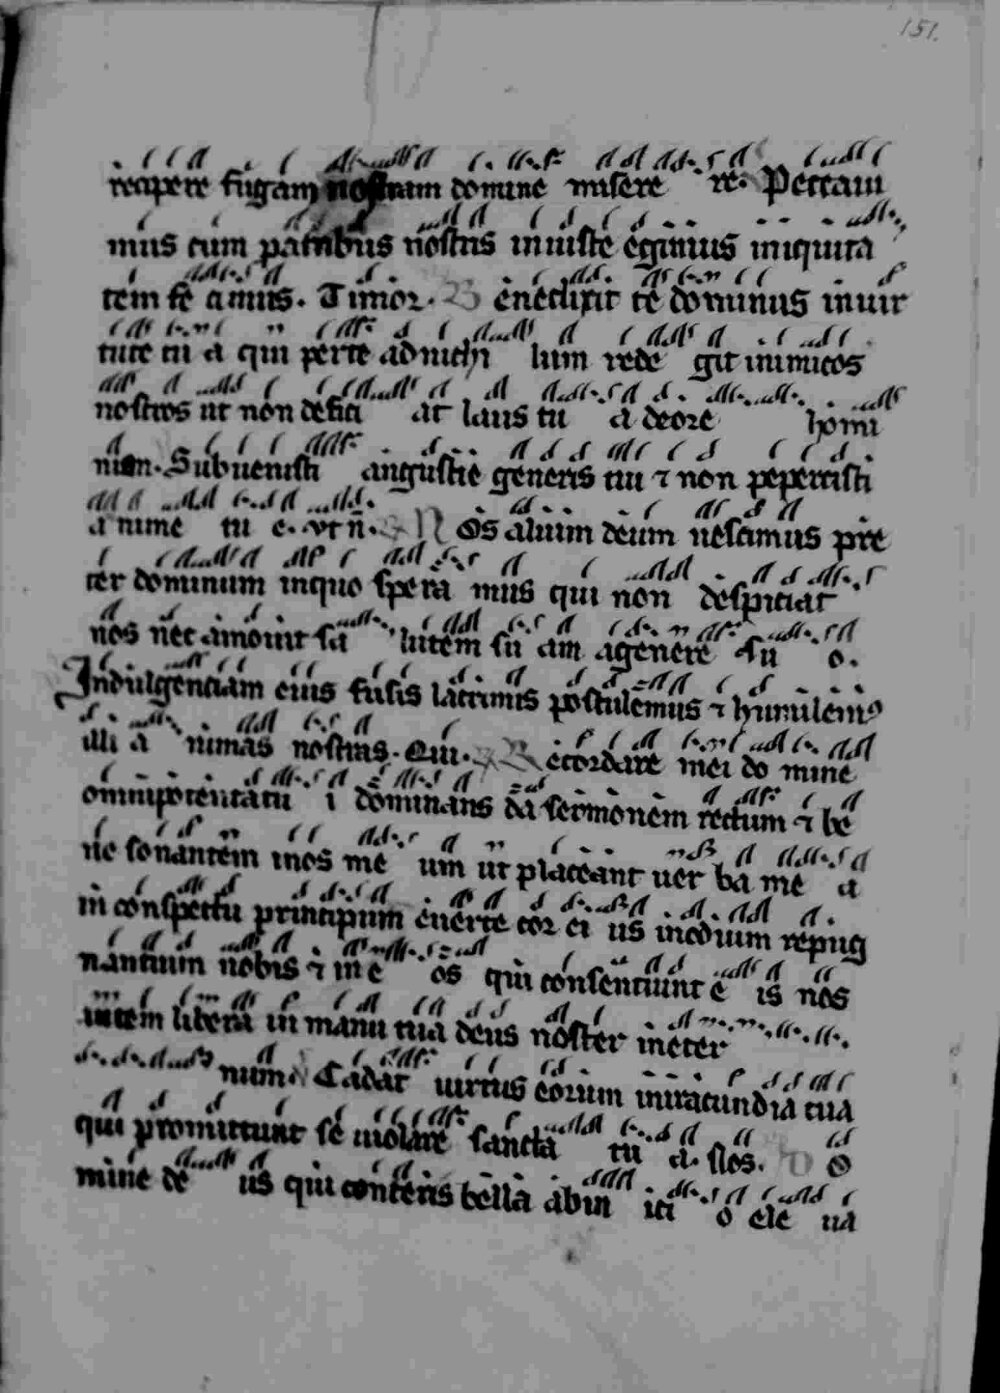 151.
recipere fugam nostram domine misere re. Peccaui
mus cum patribus nostris iniuste egimus iniquita
tem fe cimus. Timor. B enedixit te dominus in uir
tute tu a qui per te ad nichi lum rede git inimicos
nostros ut non defici at laus tu a de ore homi
num. Subuenisti angustie generis tui ⁊ non pepercisti
a nime tu e. vt n̄. N Os alium deum nescimus pre
ter dominum in quo spera mus qui non despiciat
nos nec amouit sa lutem su am a genere su o.
Indulgenciam eius fusis lacrimis postulemus ⁊ humilemꝰ
illi a nimas nostras. Qui. R ecordare mei do mine
omnipotentatu i dominans da sermonem rectum ⁊ be
ne sonantem in os me um ut placeant uer ba me a
in conspectu principum euerte cor ei us in odium repug
nantium nobis ⁊ in e os qui consentiunt e is nos
autem libera in manu tua deus noster in eter
num. Cadat uirtus eorum in iracundia tua
qui promittunt se uiolare sancta tu a. nos. D O
mine de us qui conteris bella ab in ici o ele ua